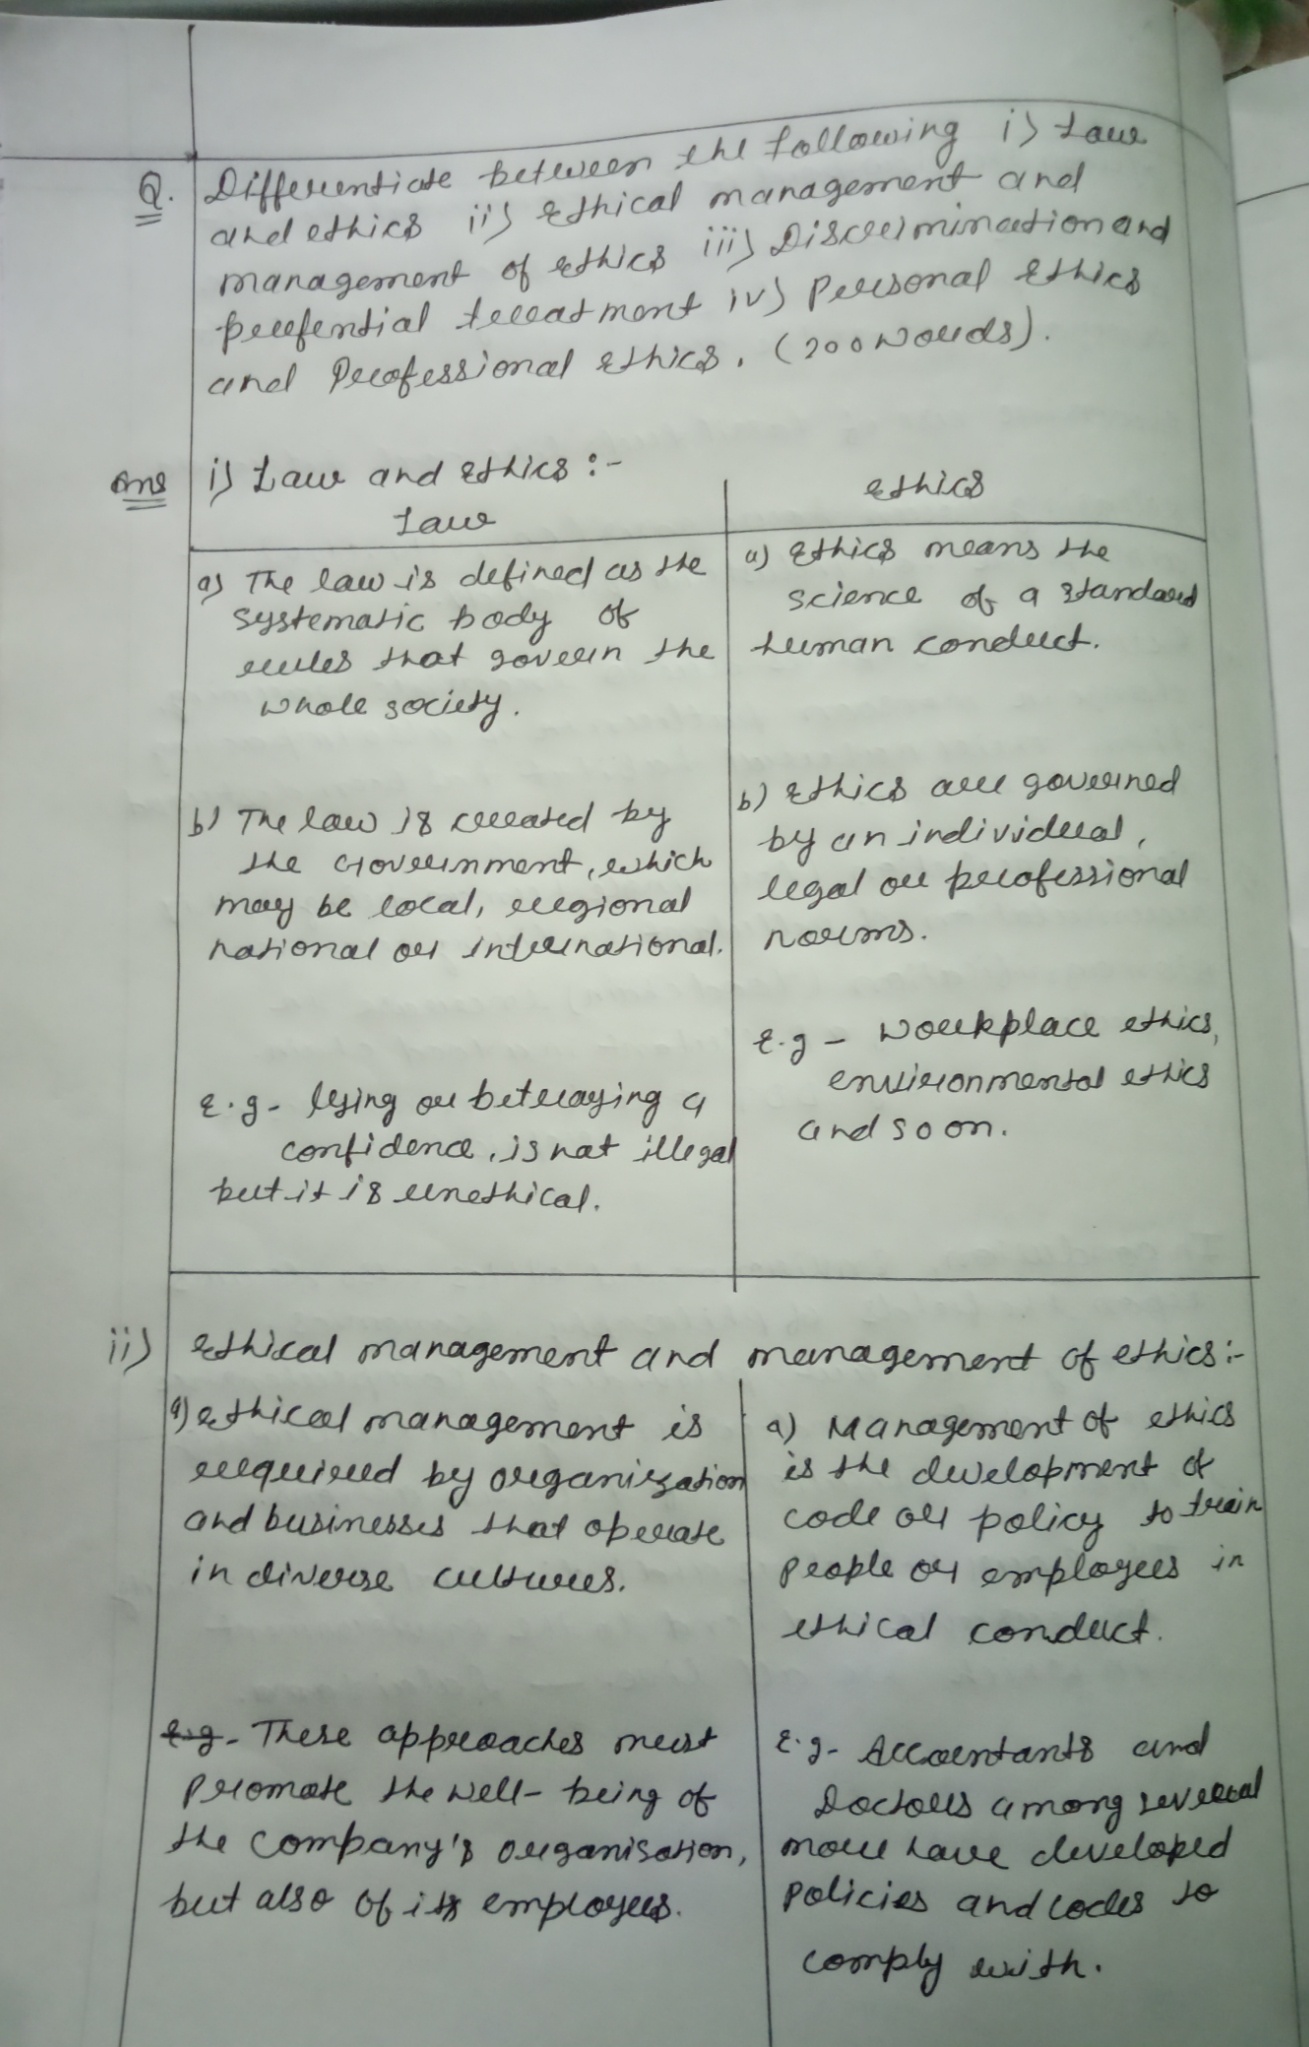 Q. Differentiate between the following i) Law
and ethics ii) Ethical management and
management of ethics iii) Discrimination and
prefential treatment iv) Personal Ethics
and Professional Ethics. (200 words).
Ans i) Law and Ethics :-
Law
a) The law is defined as the
systematic body of
rules that govern the
whole society.
b) The law is created by
the Government, which
may be local, regional
national or international.
E.g - lying or betraying a
confidence, is not illegal
but it is unethical.
ethics
a) Ethics means the
science of a standard
human conduct.
b) Ethics are governed
by an individual,
legal or professional
norms.
E.g - Workplace ethics,
environmental ethics
and so on.
ii) Ethical management and management of ethics :-
a) ethical management is
required by organization
and businesses that operate
in diverse cultures.
E.g - These approaches must
promote the well-being of
the company's organisation,
but also of its employees.
a) Management of ethics
is the development of
code or policy to train
people or employees in
ethical conduct.
E.g - Accountants and
Doctors among several
more have developed
policies and codes to
comply with.